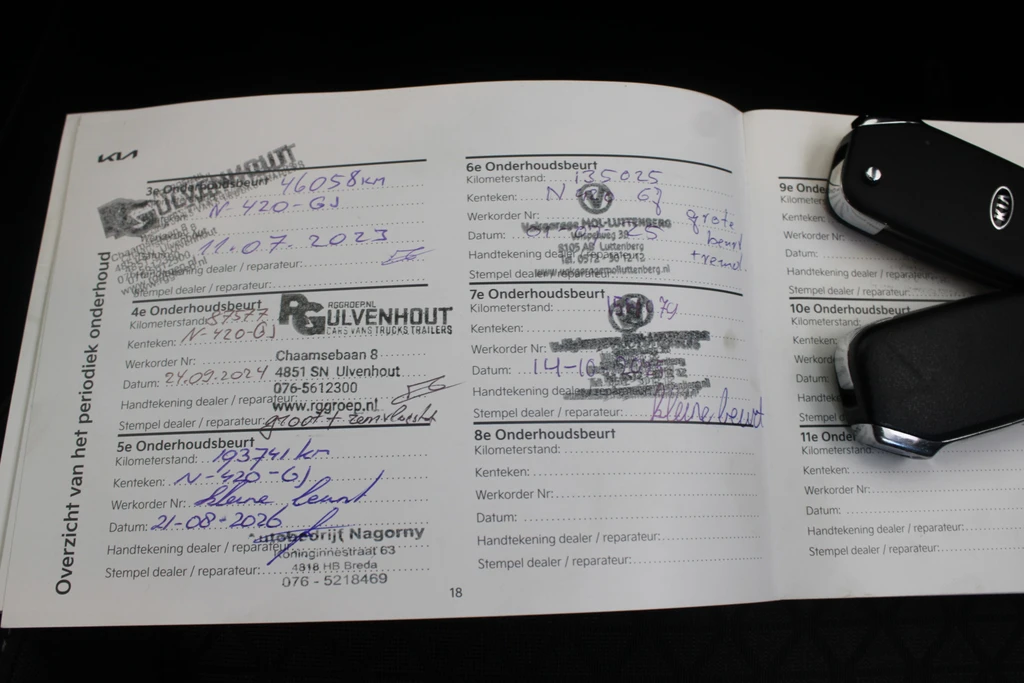 KIA
Overzicht van het periodiek onderhoud
3e Onderhoudsbeurt
46058 km
N-420-GJ
11.07.2023
Handtekening dealer / reparateur:
Stempel dealer / reparateur:
4e Onderhoudsbeurt
RGGROEP.NL
RG ULVENHOUT
CARS VANS TRUCKS TRAILERS
Kilometerstand:
Kenteken: N-420-GJ
Werkorder Nr:
Chaamsebaan 8
Datum: 24.09.2024
4851 SN Ulvenhout
076-5612300
Handtekening dealer / reparateur:
www.rggroep.nl
Stempel dealer / reparateur: groot + remvloeistof
5e Onderhoudsbeurt
Kilometerstand: 193741 km
Kenteken: N-420-GJ
Werkorder Nr: kleine beurt
Datum: 21-08-2026
Autobedrijf Nagorny
Handtekening dealer / reparateur:
Koninginnestraat 63
4818 HB Breda
Stempel dealer / reparateur:
076 - 5218469
18
6e Onderhoudsbeurt
Kilometerstand: 135025
Kenteken: N
Werkorder Nr:
MOL-LUTTENBERG
grote
beurt
Datum:
8105 AB Luttenberg
Handtekening dealer / reparateur:
Tel. 0572 - 30 12 12
Stempel dealer / reparateur:
www.vakgaragemolluttenberg.nl
7e Onderhoudsbeurt
Kilometerstand:
Kenteken:
Werkorder Nr:
Datum: 14-10
Handtekening dealer / reparateur:
Stempel dealer / reparateur: kleine beurt
8e Onderhoudsbeurt
Kilometerstand:
Kenteken:
Werkorder Nr:
Datum:
Handtekening dealer / reparateur:
Stempel dealer / reparateur:
9e Onde
Kilometerst
Kenteken:
Werkorder Nr
Datum:
Handtekening dealer
Stempel dealer / reparateur:
10e Onderhoudsb
Kilometerstand:
Kenteken:
Werkord
Datum
Handte
Stempel d
11e Onder
Kilometerstand:
Kenteken:
Werkorder Nr:
Datum:
Handtekening dealer / reparateur:
Stempel dealer / reparateur:
KIA